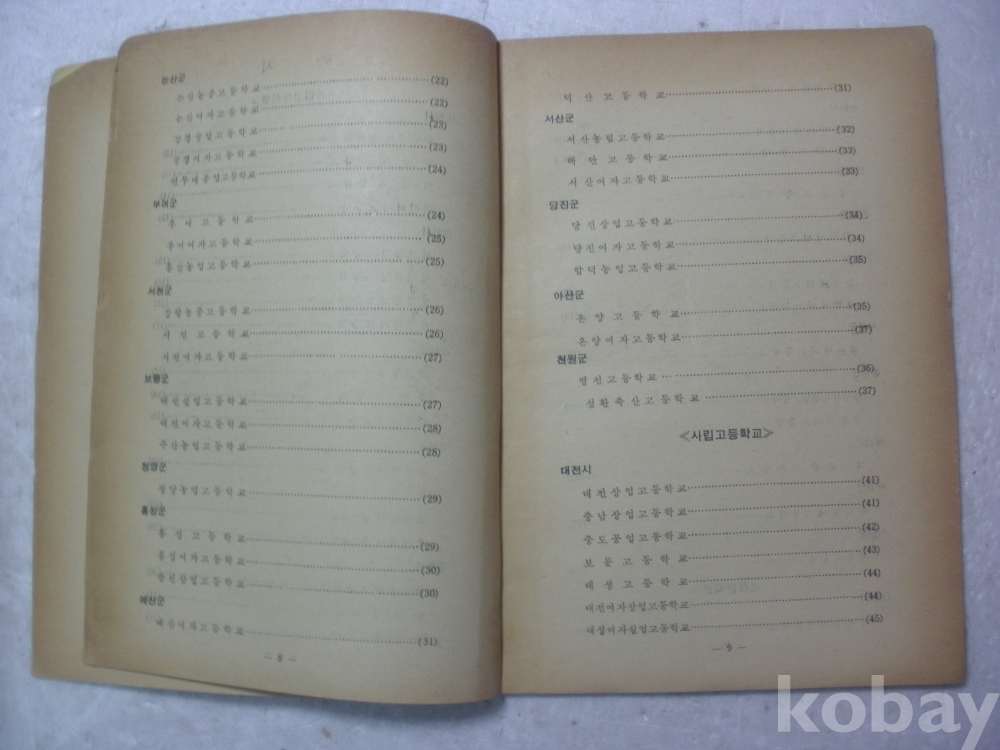 논산군
논산농공고등학교 (22)
논산여자고등학교 (22)
강경상업고등학교 (23)
강경여자고등학교 (23)
연무대공업고등학교 (24)
부여군
부여고등학교 (24)
부여여자고등학교 (25)
홍산농업고등학교 (25)
서천군
(26)
서천고등학교 (26)
서천여자고등학교 (27)
보령군
대천실업고등학교 (27)
대천여자고등학교 (28)
주산농업고등학교 (28)
청양군
청양농업고등학교 (29)
홍성군
홍성고등학교 (29)
홍성여자고등학교 (30)
광천상업고등학교 (30)
예산군
예산여자고등학교 (31)
— 8 —
덕산고등학교 (31)
서산군
서산농림고등학교 (32)
태안고등학교 (33)
서산여자고등학교 (33)
당진군
당진상업고등학교 (34)
당진여자고등학교 (34)
합덕농업고등학교 (35)
아산군
온양고등학교 (35)
온양여자고등학교 (37)
천원군
병천고등학교 (36)
성환축산고등학교 (37)
≪사립고등학교≫
대전시
대전상업고등학교 (41)
충남상업고등학교 (41)
중도공업고등학교 (42)
보문고등학교 (43)
대성고등학교 (44)
대전여자상업고등학교 (44)
대성여자실업고등학교 (45)
— 9 —
kobay